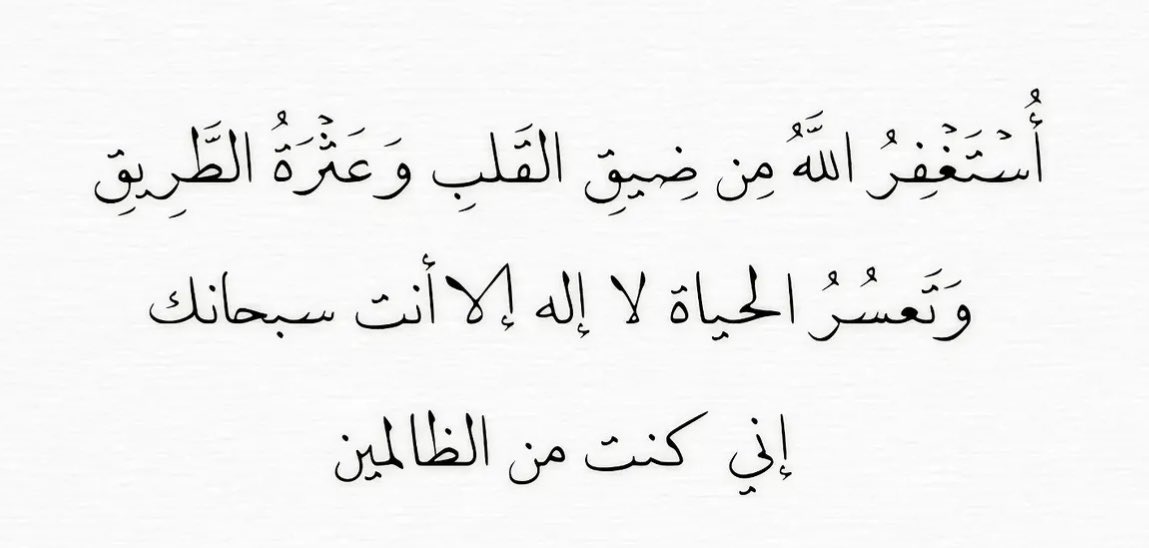 أُسْتَغْفِرُ اللَّهُ مِن ضِيقِ القَلبِ وَعَثْرَةُ الطَّرِيقِ
وَتَعسُرُ الحياة لا إله إلا أنت سبحانك
إني كنت من الظالمين